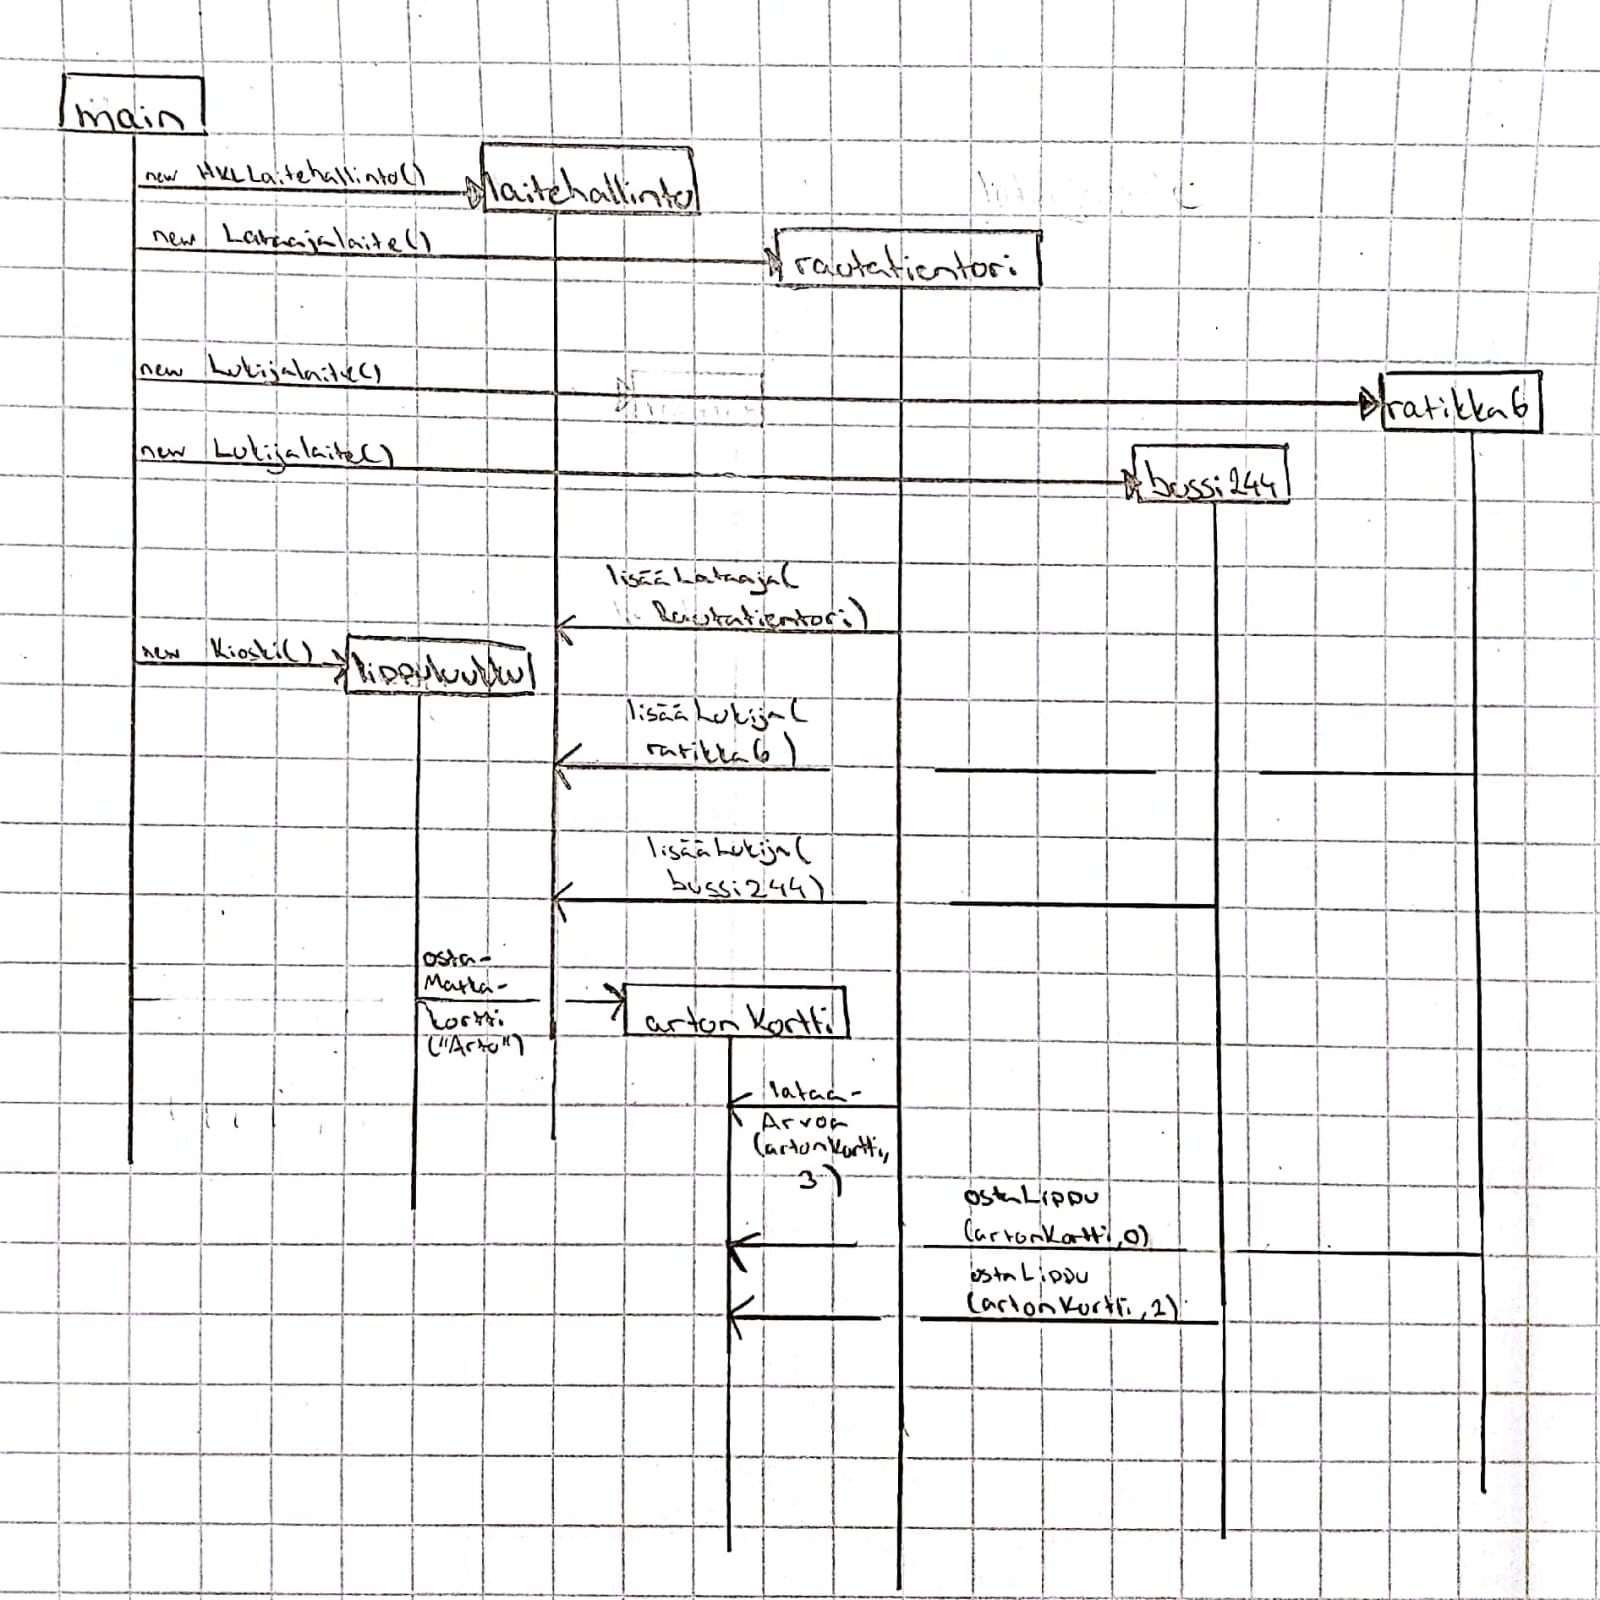 main
new HKLLaitehallinto()
laitehallinto
new Lataajalaite()
rautatientori
new Lukijalaite()
ratikka6
new Lukijalaite()
bussi244
lisääLataaja(
Rautatientori)
new Kioski()
lippuluukku
lisääLukija(
ratikka6)
lisääLukija(
bussi244)
osta-
Matka-
kortti
("Arto")
artonKortti
lataa-
Arvoa
(artonKortti,
3)
ostaLippu
(artonKortti,0)
ostaLippu
(artonKortti,2)